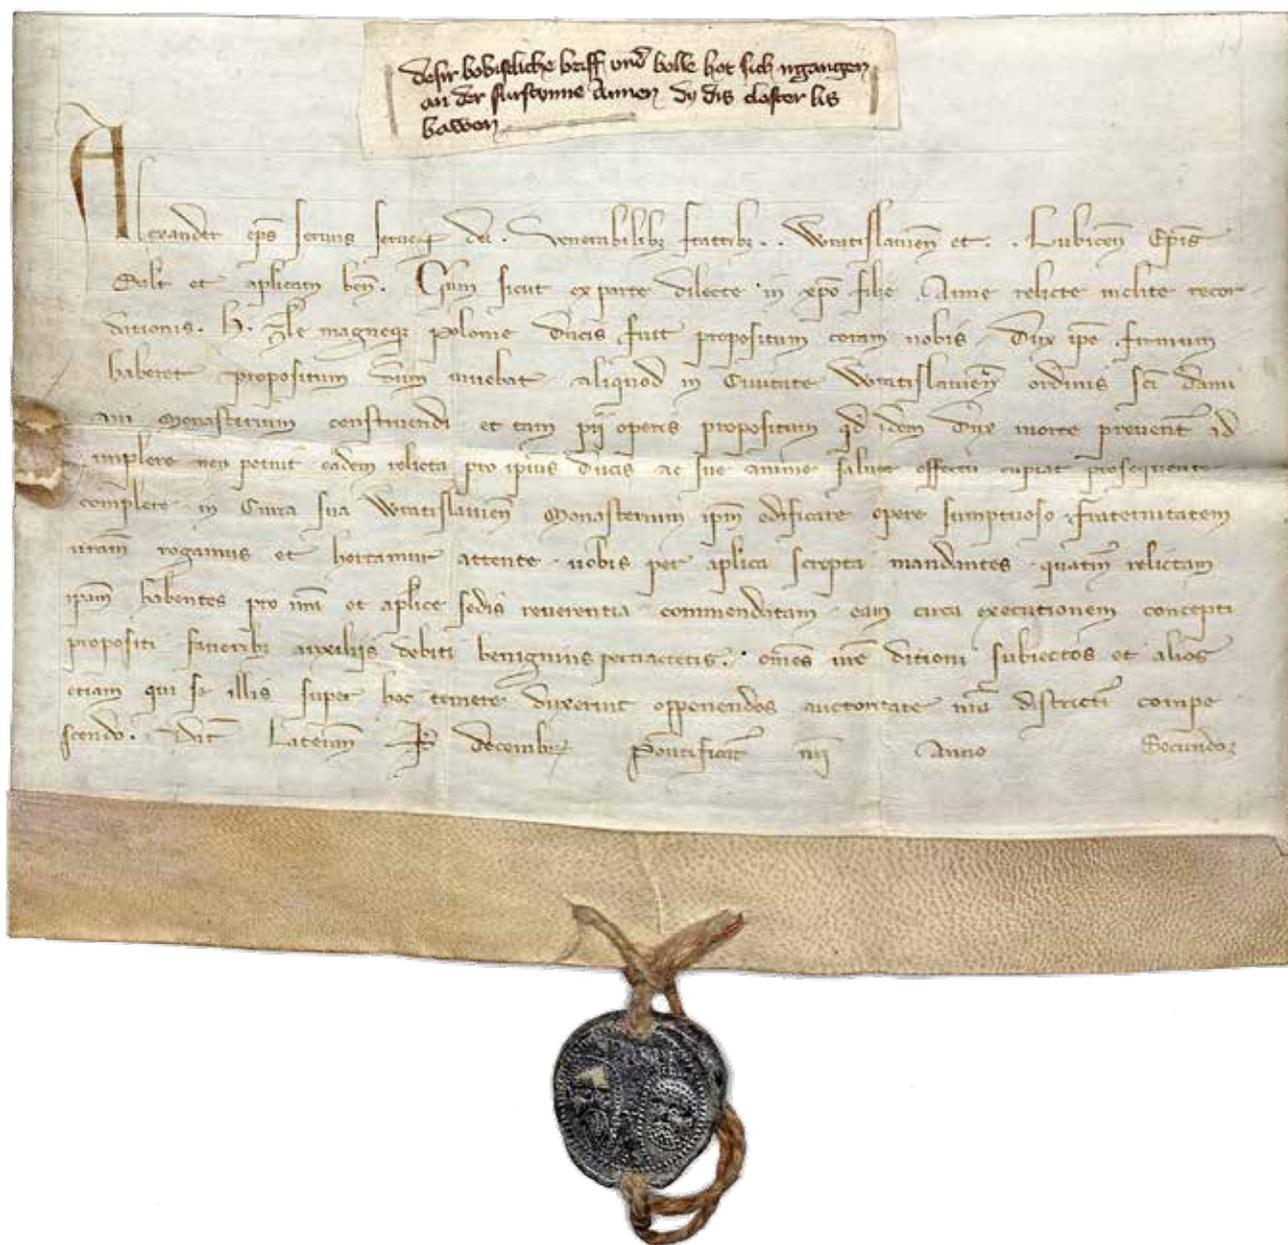 deser bobistliche briff und bolle hot sich irgangen
an der furstynne Annen dy dis closter lis
bawen
Alexander eps servus servoꝝ dei. Venerabilibꝫ fratribꝫ . . Wratislavien̄ et . . Lubicen̄ Epis
Salt̄ et aplicam ben̄. Cum sicut ex parte dilecte in xp̄o filie Anne relicte inclite recor
dationis. H. Zl̄e magneqꝫ Polonie Ducis fuit propositum coram nobis Dux ip̄e firmum
haberet propositum dum vivebat aliquod in Civitate Wratislavien̄ ordinis sc̄i Dami
ani Monasterium construendi et tam pij operis propositum qd̄ idem Dux morte prevent̄ ad
implere non potuit eadem relicta pro ip̄ius Ducis ac sue anime salute effectu cupiat prosequente
complere in Curia sua Wratislavien̄ Monasterium ip̄m edificare opere sumptuoso fraternitatem
vram̄ rogamus et hortamur attente vobis per aplica scripta mandantes quatin̄ relictam
ip̄am habentes pro nr̄a et aplice sedis reverentia commendatam eam circa executionem concepti
propositi favoribꝫ auxilijs debiti benignius pertractetis. om̄es vr̄e ditioni subiectos et alios
etiam qui se illis super hoc temere duxerint opponendos auctoritate nr̄a districti᷒ compe
scendo. Dat̄ Lateran̄ Kl̄ decembrꝫ Pontificat̄ nr̄i Anno Secundo